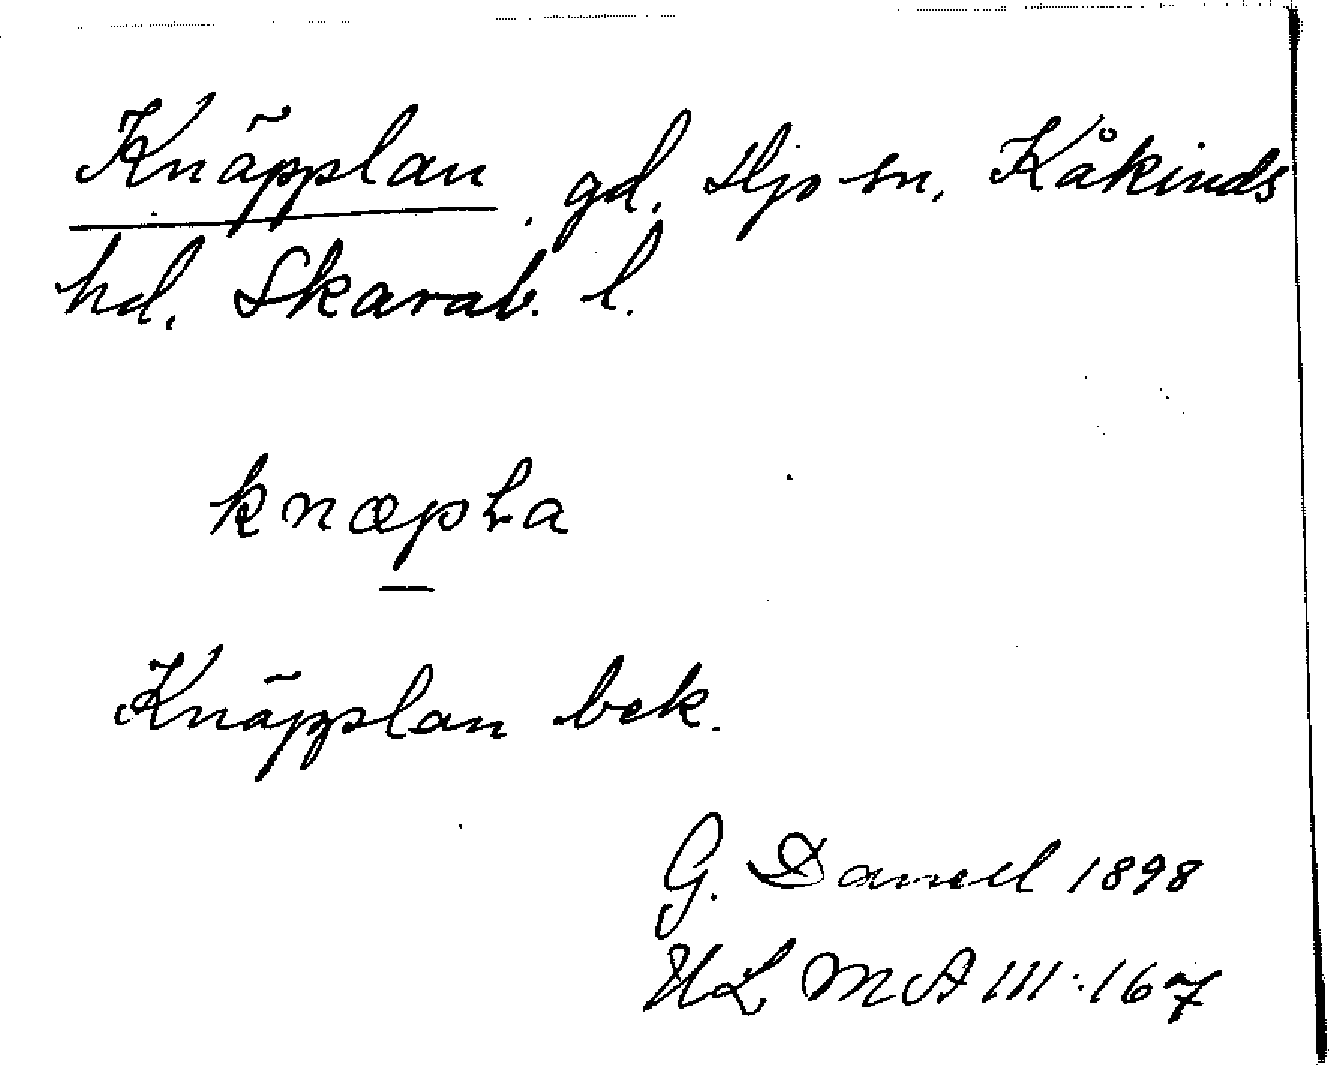 Knäpplan. gd. Hjo sn, Kåkinds
hd. Skarab. l.
knæpLa
Knäpplan bek.
G. Danell 1898
ULMA III:167